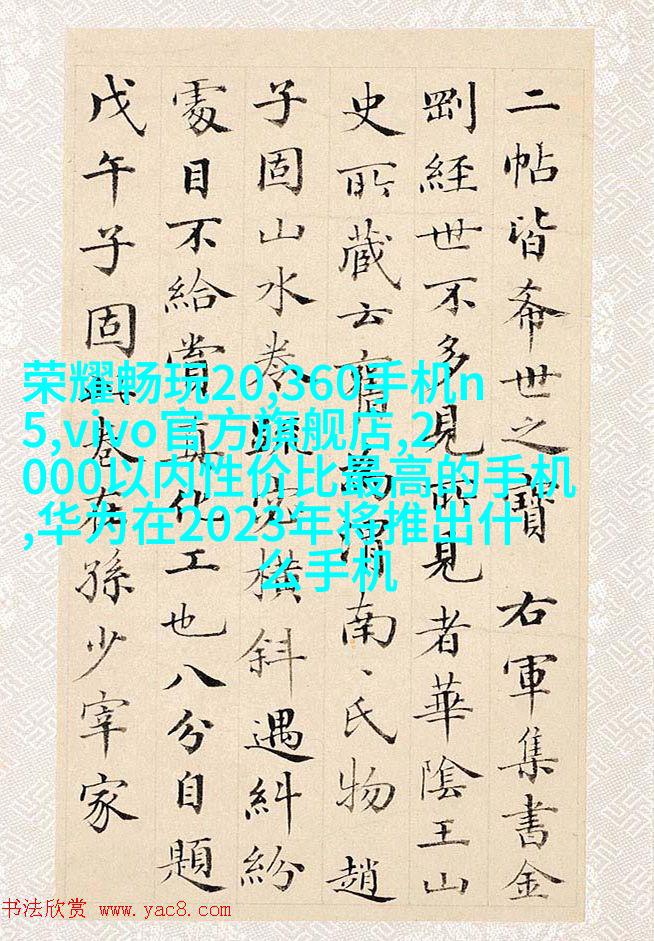 二帖皆希世之寶右軍集書金
剛經世不多見所見者華陰王山
史所藏云舊為渭南、氏物趙
子固山水卷疏宕橫斜遇糾紛
處目不給賞真化工也八分自題
戊午子固卷在孫少宰家
荣耀畅玩20,360手机n
5,vivo官方旗舰店,2
000以内性价比最高的手机
,华为在2023年将推出什
么手机
书法欣赏 www.yac8.com